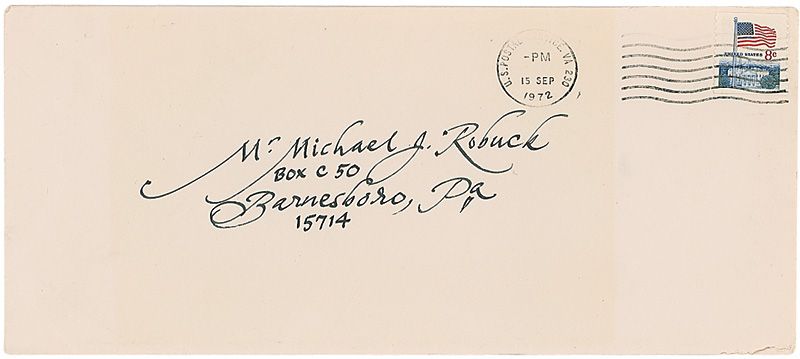 U.S. POSTAL VA 230
-PM
15 SEP
1972
UNITED STATES 8c
Mr Michael J. Robuck
BOX C 50
Barnesboro, Pa
15714